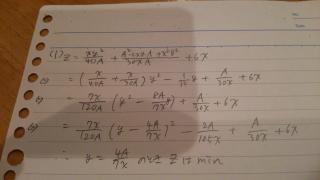 (1) z = xy²/40A + (A² - 2xyA + x²y²)/30xA + 6x
⇔ = (x/40A + x/30A) y² - 1/15 y + A/30x + 6x
⇔ = 7x/120A (y² - 8A/7x y) + A/30x + 6x
⇔ = 7x/120A (y - 4A/7x)² - 2A/105x + A/30x + 6x
∴ y = 4A/7x のとき z は min